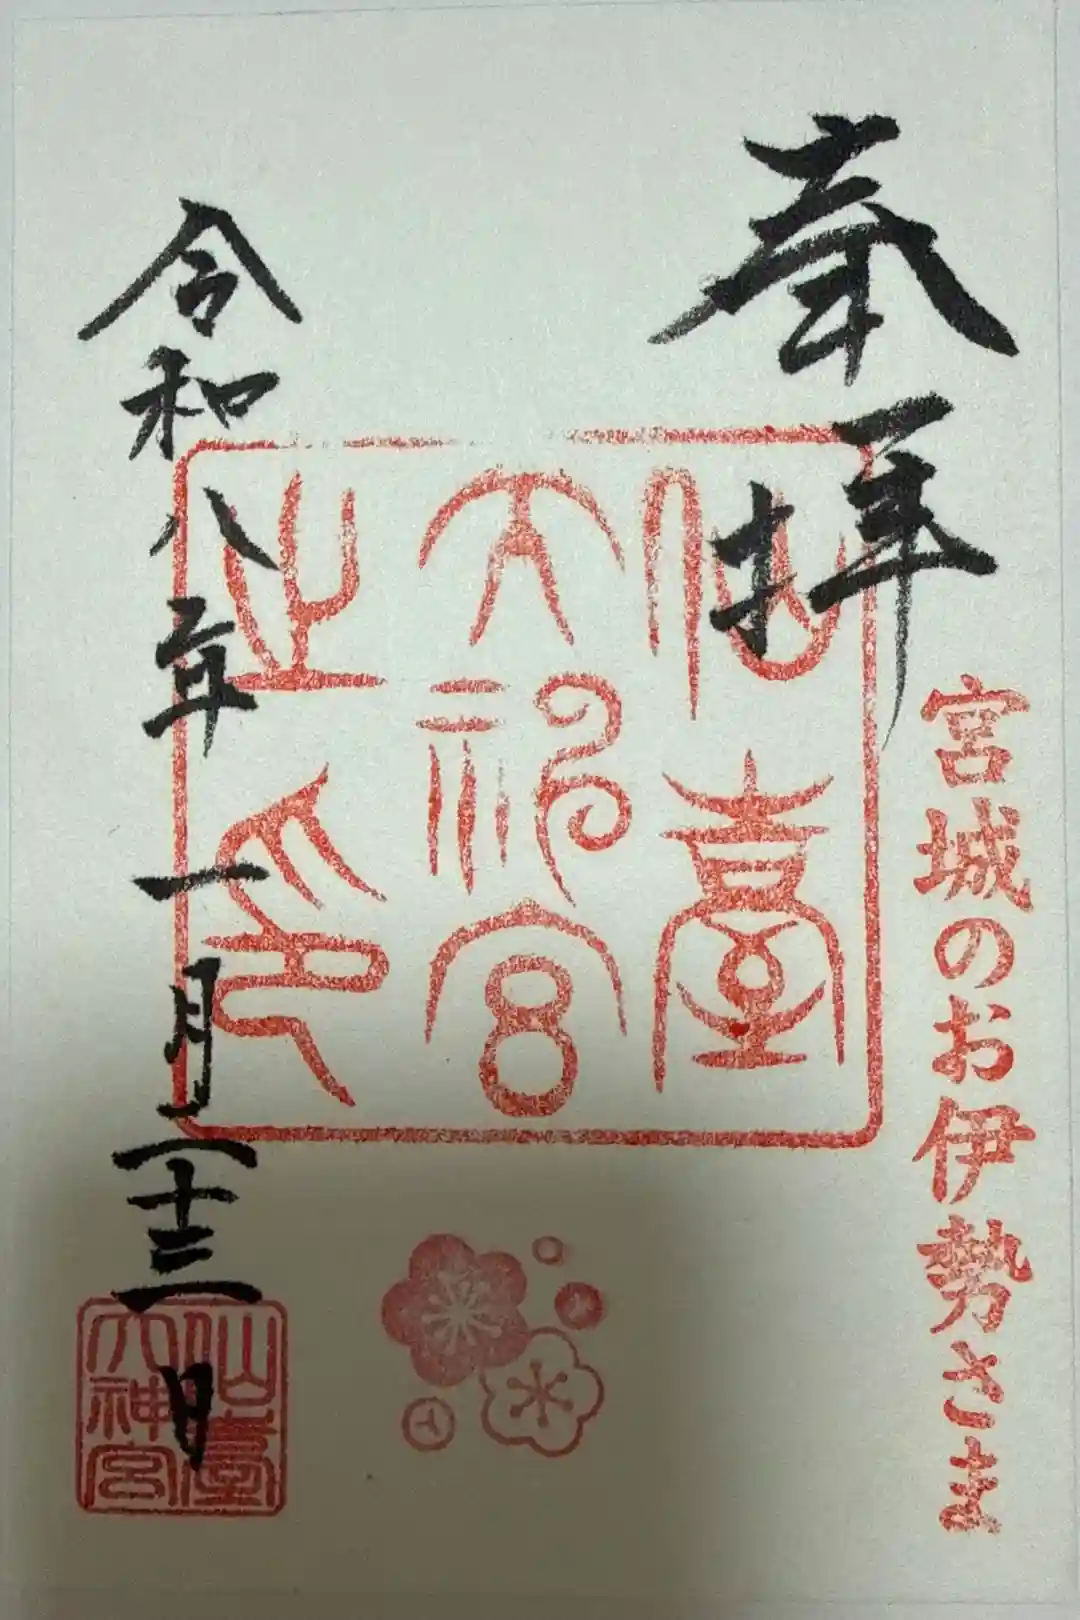 奉拝
宮城のお伊勢さま
仙臺
大神宮
之印
令和八年一月二十三日
仙臺
大神宮